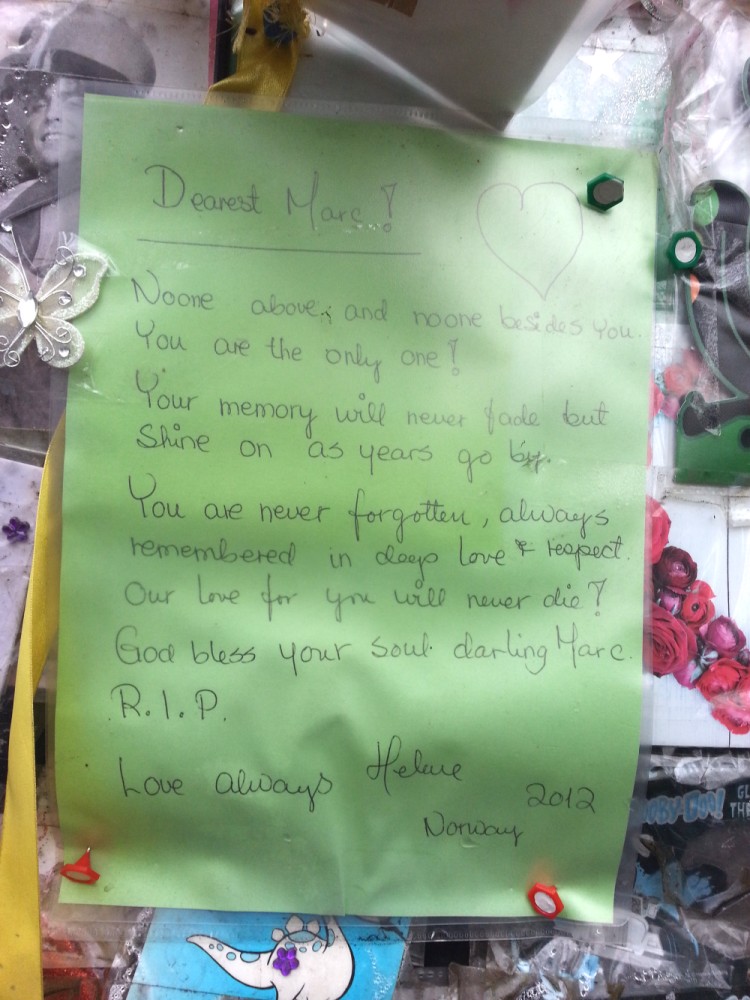 Dearest Marc!
Noone above, and noone besides you.
You are the only one!
Your memory will never fade but
Shine on as years go by.
You are never forgotten, always
remembered in deep love & respect.
Our love for you will never die!
God bless your soul darling Marc.
R.I.P.
Love always Helene 2012
Norway
OBY-DOO!